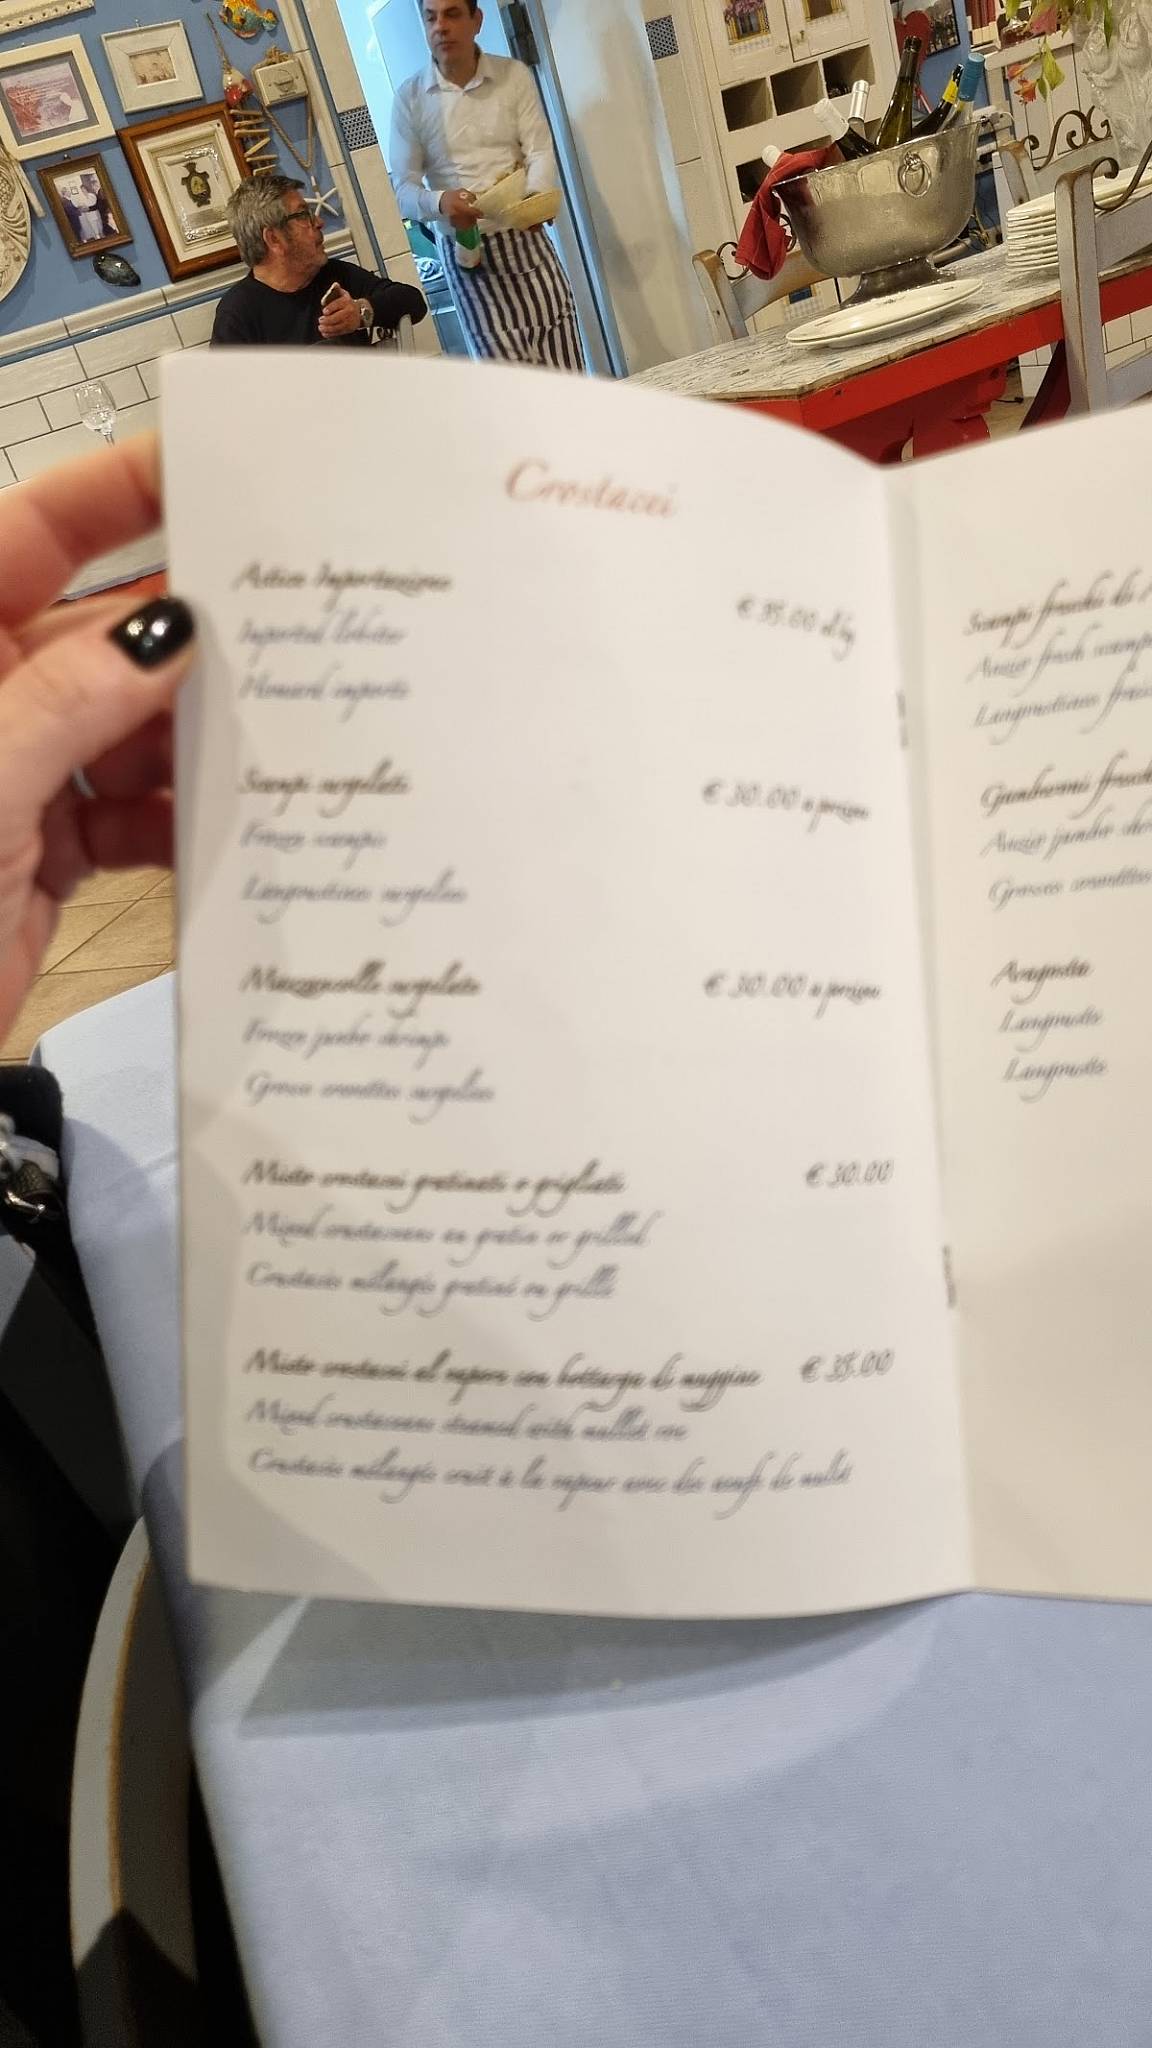 Crostacei
Astice Importazione
€ 35.00 al kg
Imported lobster
Homard importé
Scampi surgelati
€ 30.00 a porzione
Frozen scampis
Langoustines surgelées
Mazzancolle surgelate
€ 30.00 a porzione
Frozen jumbo shrimps
Grosses crevettes surgelées
Misto crostacei gratinati o grigliati
€ 30.00
Mixed crustaceans au gratin or grilled
Crustacés mélangés gratiné ou grillé
Misto crostacei al vapore con bottarga di muggine
€ 35.00
Mixed crustaceans steamed with mullet roe
Crustacés mélangés cuit à la vapeur avec des oeufs de mulet
Scampi freschi di
fresh
Langoustines
Gamberoni
jumbo
Grosses crevettes
Aragosta
Langouste
Langouste